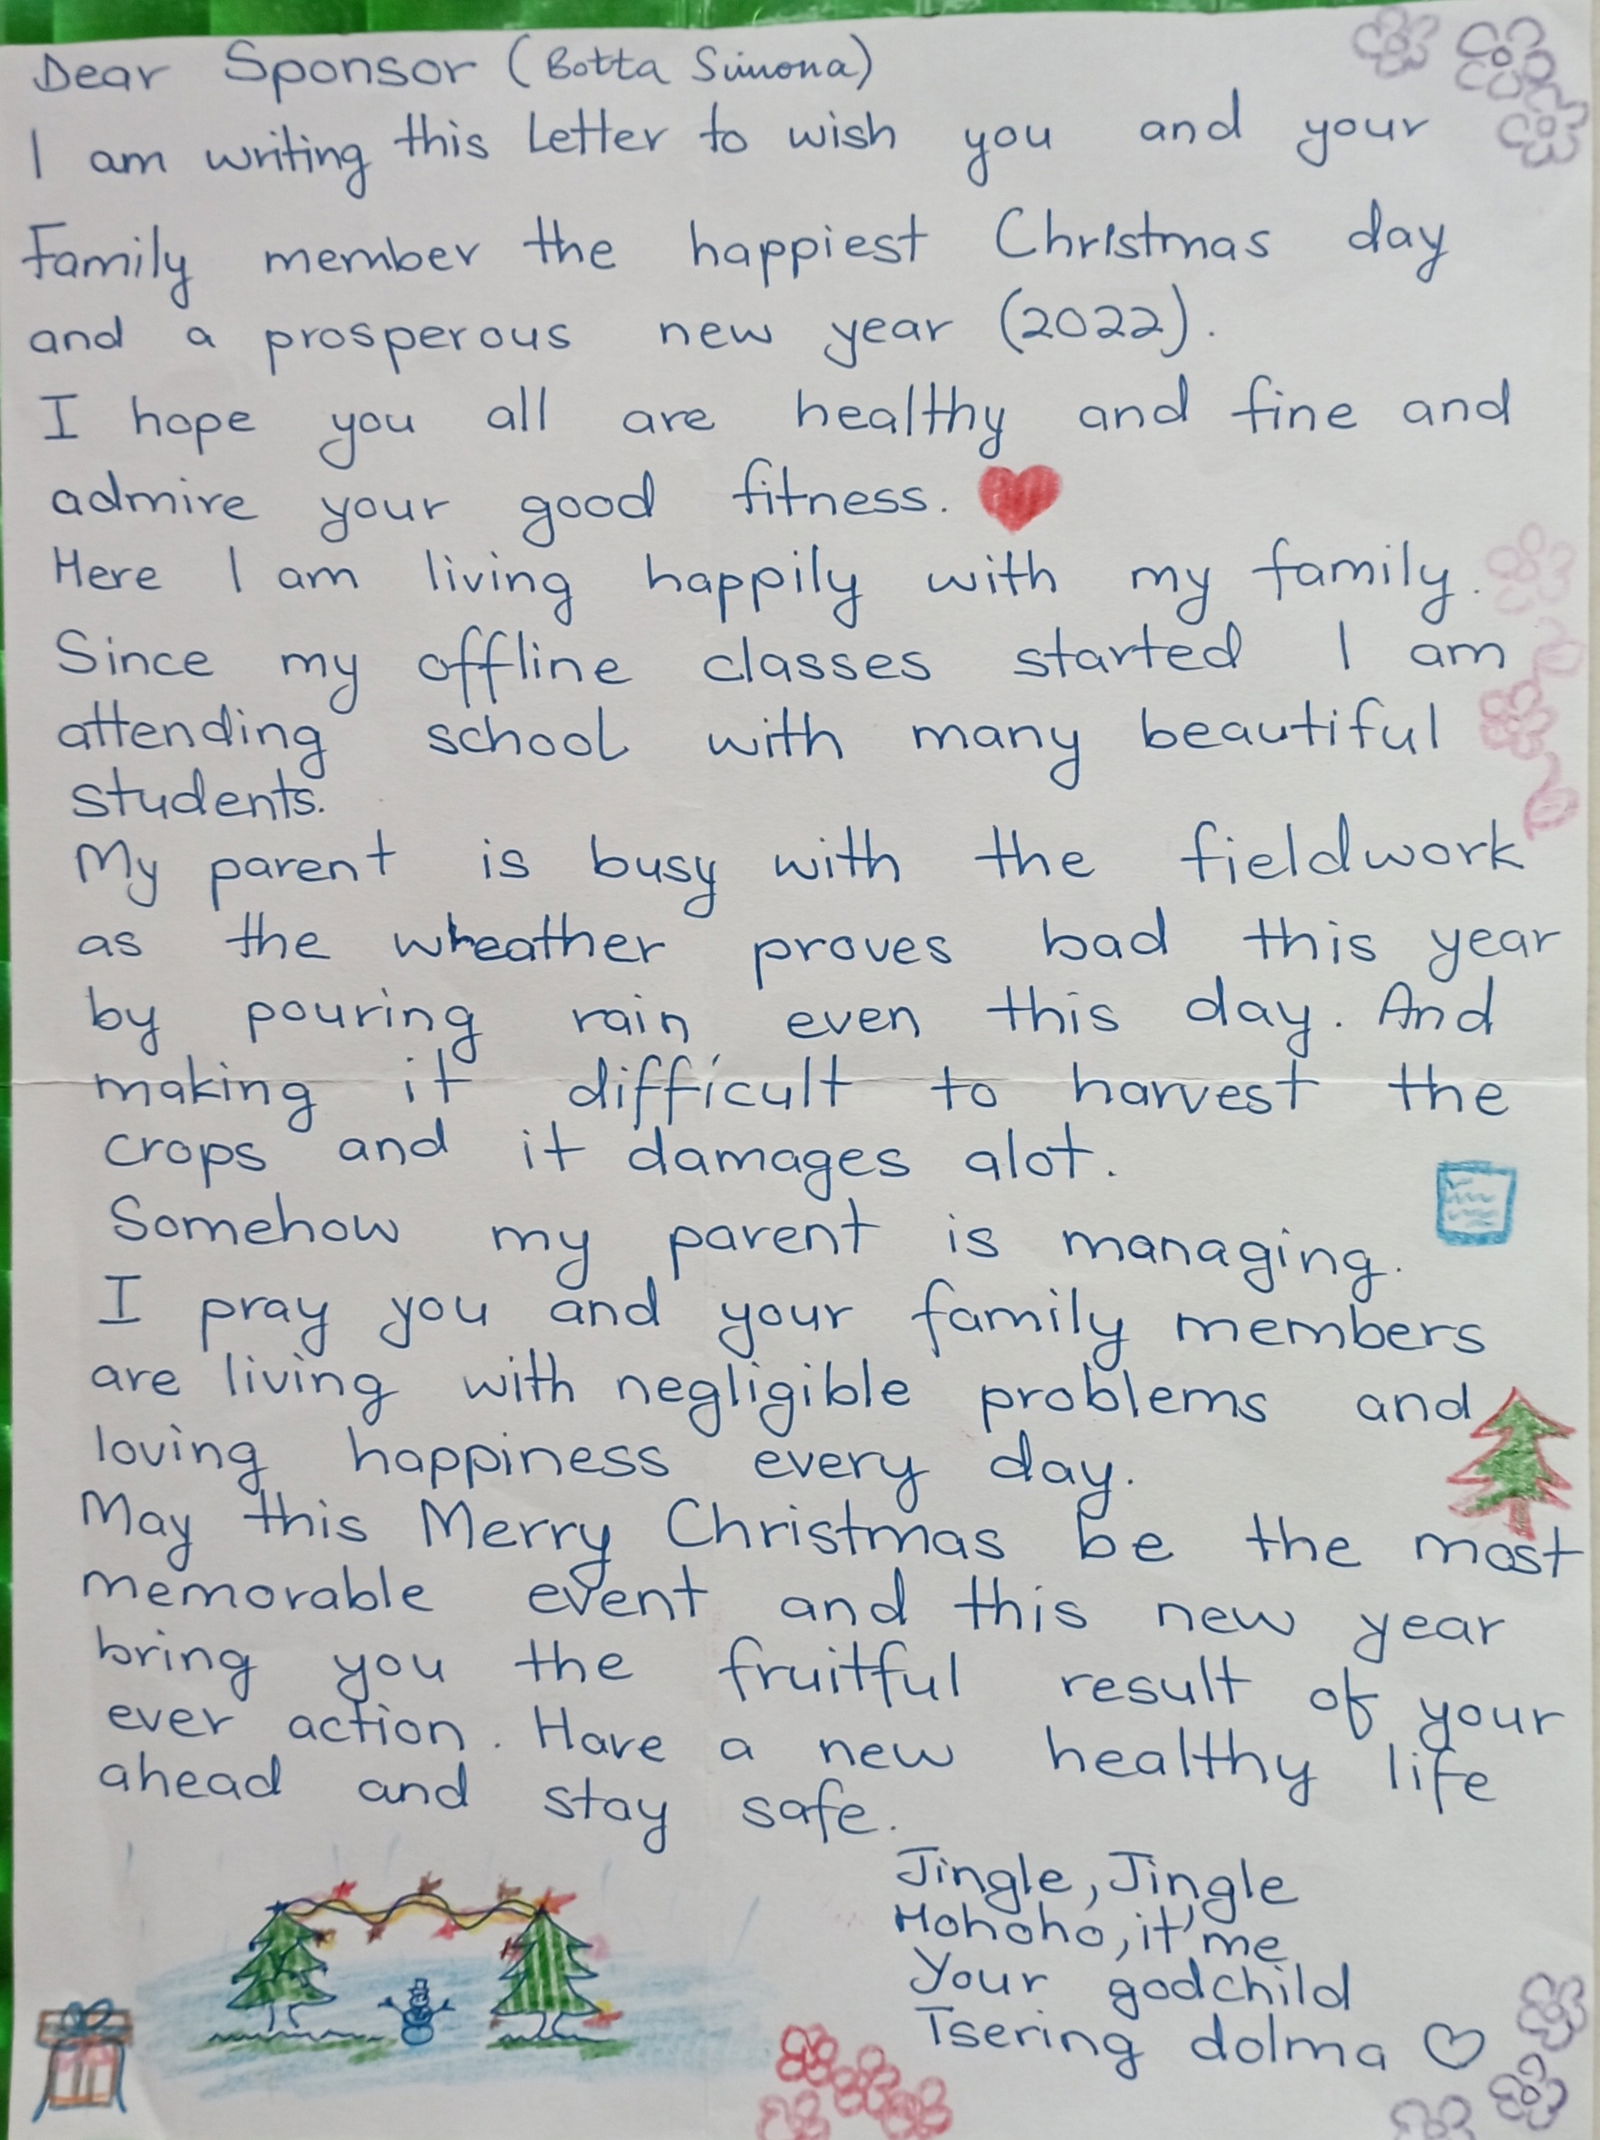 Dear Sponsor (Botta Simona)
I am writing this Letter to wish you and your
Family member the happiest Christmas day
and a prosperous new year (2022).
I hope you all are healthy and fine and
admire your good fitness.
Here I am living happily with my family.
Since my offline classes started I am
attending school with many beautiful
students.
My parent is busy with the fieldwork
as the wheather proves bad this year
by pouring rain even this day. And
making it difficult to harvest the
crops and it damages alot.
Somehow my parent is managing.
I pray you and your family members
are living with negligible problems and
loving happiness every day.
May this Merry Christmas be the most
memorable event and this new year
bring you the fruitful result of your
ever action. Have a new healthy life
ahead and stay safe.
Jingle, Jingle
Hohoho, it'me
Your godchild
Tsering dolma